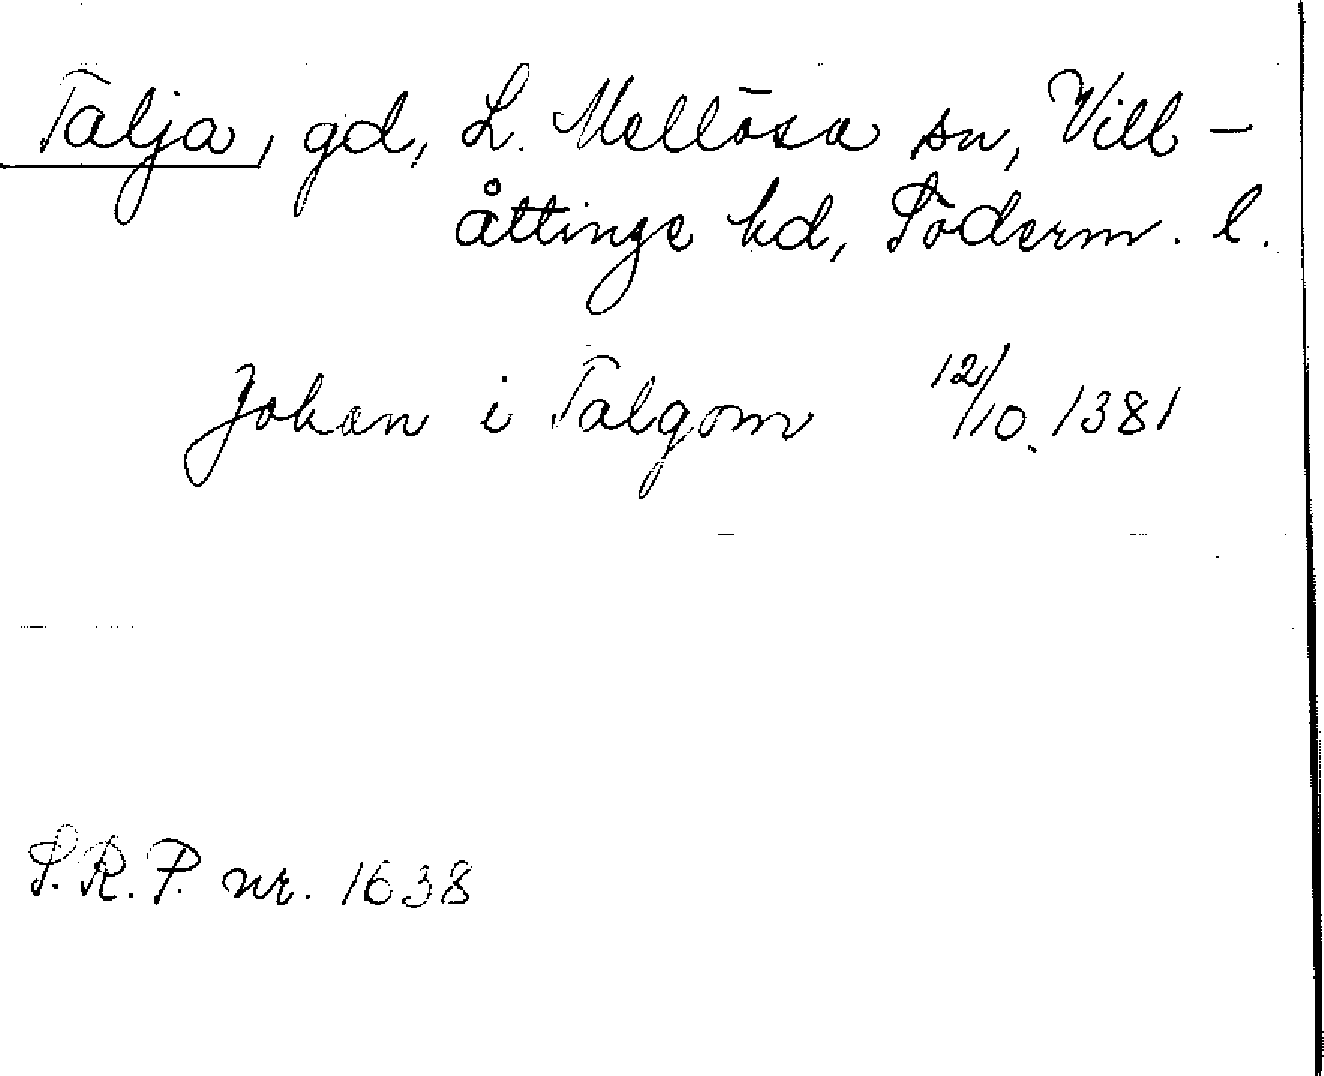 Talja, gd, L. Mellösa sn, Vill-
åttinge hd, Söderm. l.
Johan i Talgom 12/10. 1381
S.R.P. nr. 1638